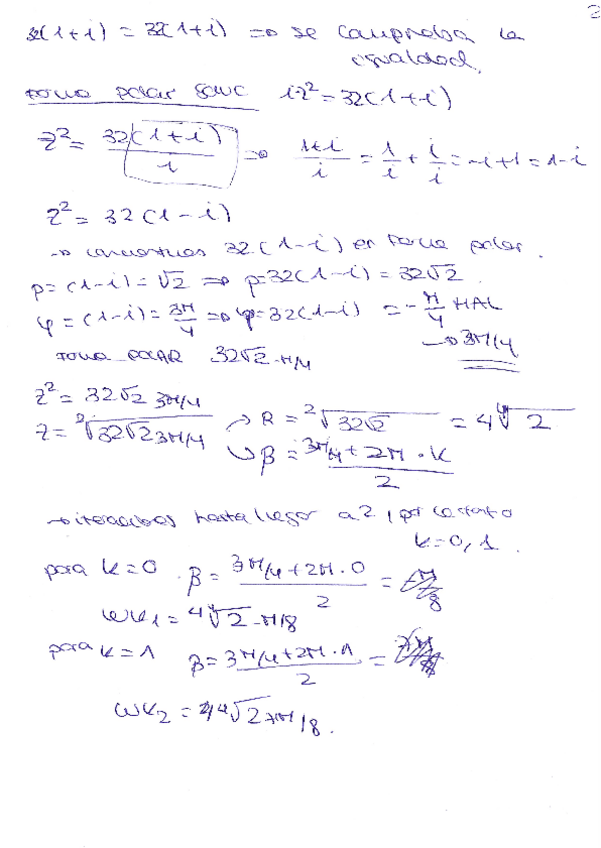 2
32(1+i) = 32(1+i) => se comprueba la
igualdad.
forma polar iz² = 32(1+i)
z² = 32(1+i)/i => 1+i/i = 1/i + i/i = -i+1 = 1-i
z² = 32(1-i)
-> 32(1-i) en forma polar.
ρ = (1-i) = √2 => ρ = 32(1-i) = 32√2
φ = (1-i) = 3π/4 => φ = 32(1-i) = -π/4 MAL
-> 3π/4
forma POLAR 32√2 -π/4
z² = 32√2 3π/4
z = ²√32√2 3π/4 -> R = ²√32√2 = 4 ⁴√2
β = 3π/4 + 2π·k / 2
-> iteraciones hasta llegar a 2, por lo tanto
k = 0, 1.
para k = 0 β = 3π/4 + 2π·0 / 2 =
wk₁ = 4 ⁴√2 -π/8
para k = 1 β = 3π/4 + 2π·1 / 2 =
wk₂ = 4 ⁴√2 7π/8.